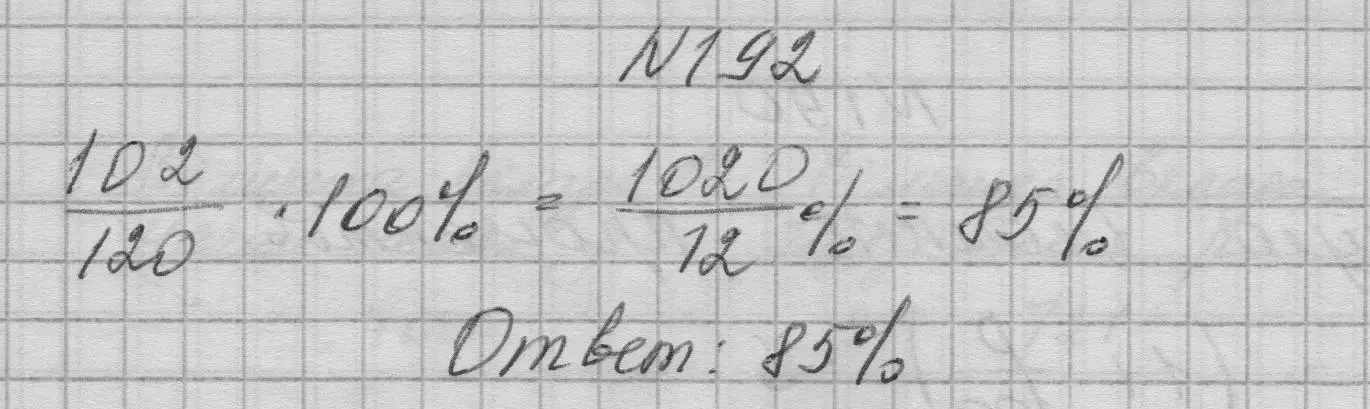 N192
102/120 · 100% = 1020/12 % = 85%
Ответ: 85%